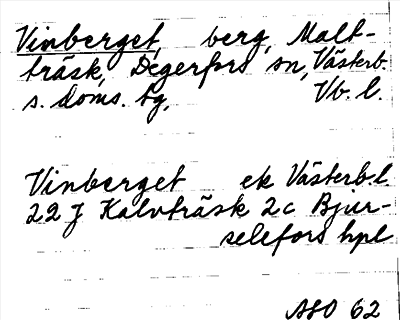 Vinberget, berg, Malt-
träsk, Degerfors sn, Västerb.
s. doms. tg, Vb. l.
Vinberget ek Västerb.l.
22 J Kalvträsk 2c Bjur-
selefors hpl
ASO 62